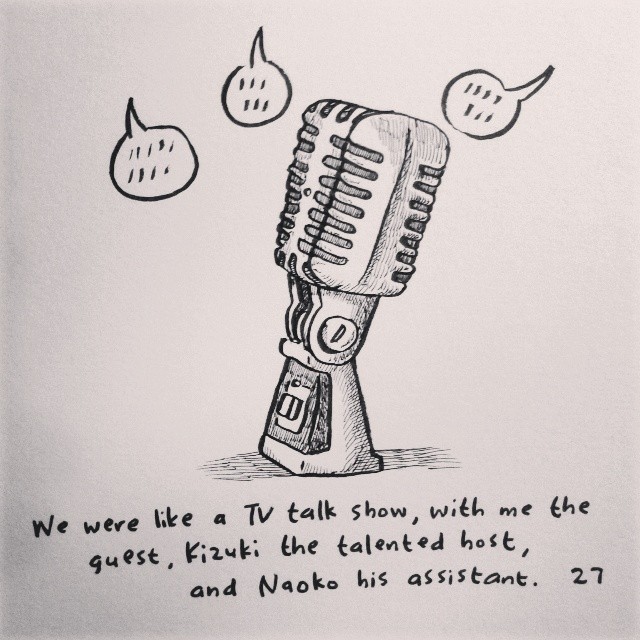 We were like a TV talk show, with me the
guest, Kizuki the talented host,
and Naoko his assistant. 27